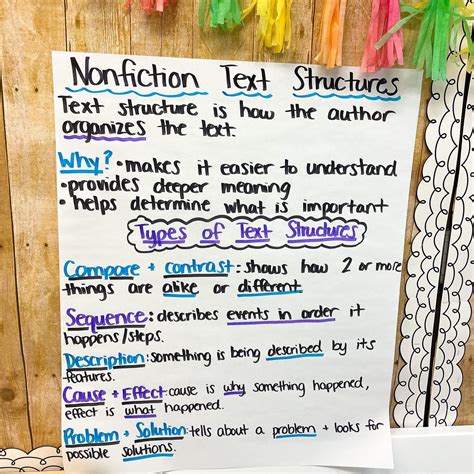 Nonfiction Text Structures
Text structure is how the author
organizes the text.
Why? • makes it easier to understand
• provides deeper meaning
• helps determine what is important
Types of Text Structures
Compare + contrast: shows how 2 or more
things are alike or different.
Sequence: describes events in order it
happens/steps.
Description: something is being described by its
features.
Cause + Effect: cause is why something happened,
effect is what happened.
Problem + Solution: tells about a problem + looks for
possible solutions.